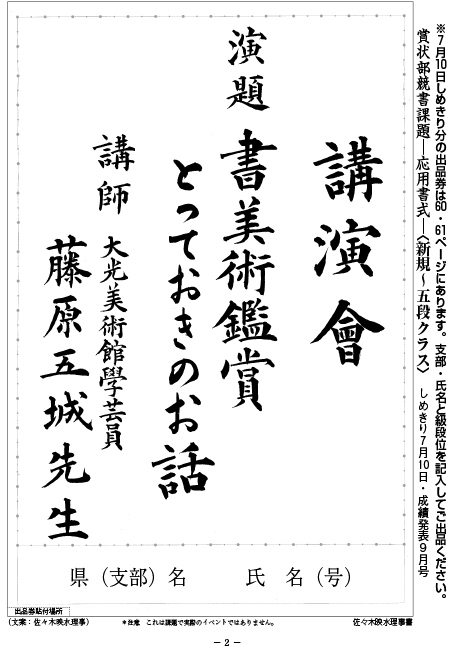 ※7月10日しめきり分の出品券は60・61ページにあります。支部・氏名と級段位を記入してご出品ください。
賞状部競書課題―応用書式―〈新規～五段クラス〉 しめきり7月10日・成績発表9月号
講演會
演題 書美術鑑賞
とっておきのお話
講師 大光美術館學芸員
藤原五城先生
県（支部）名 氏名（号）
出品券貼付場所
（文案：佐々木映水理事） ＊注意 これは課題で実際のイベントではありません。 佐々木映水理事書
－2－